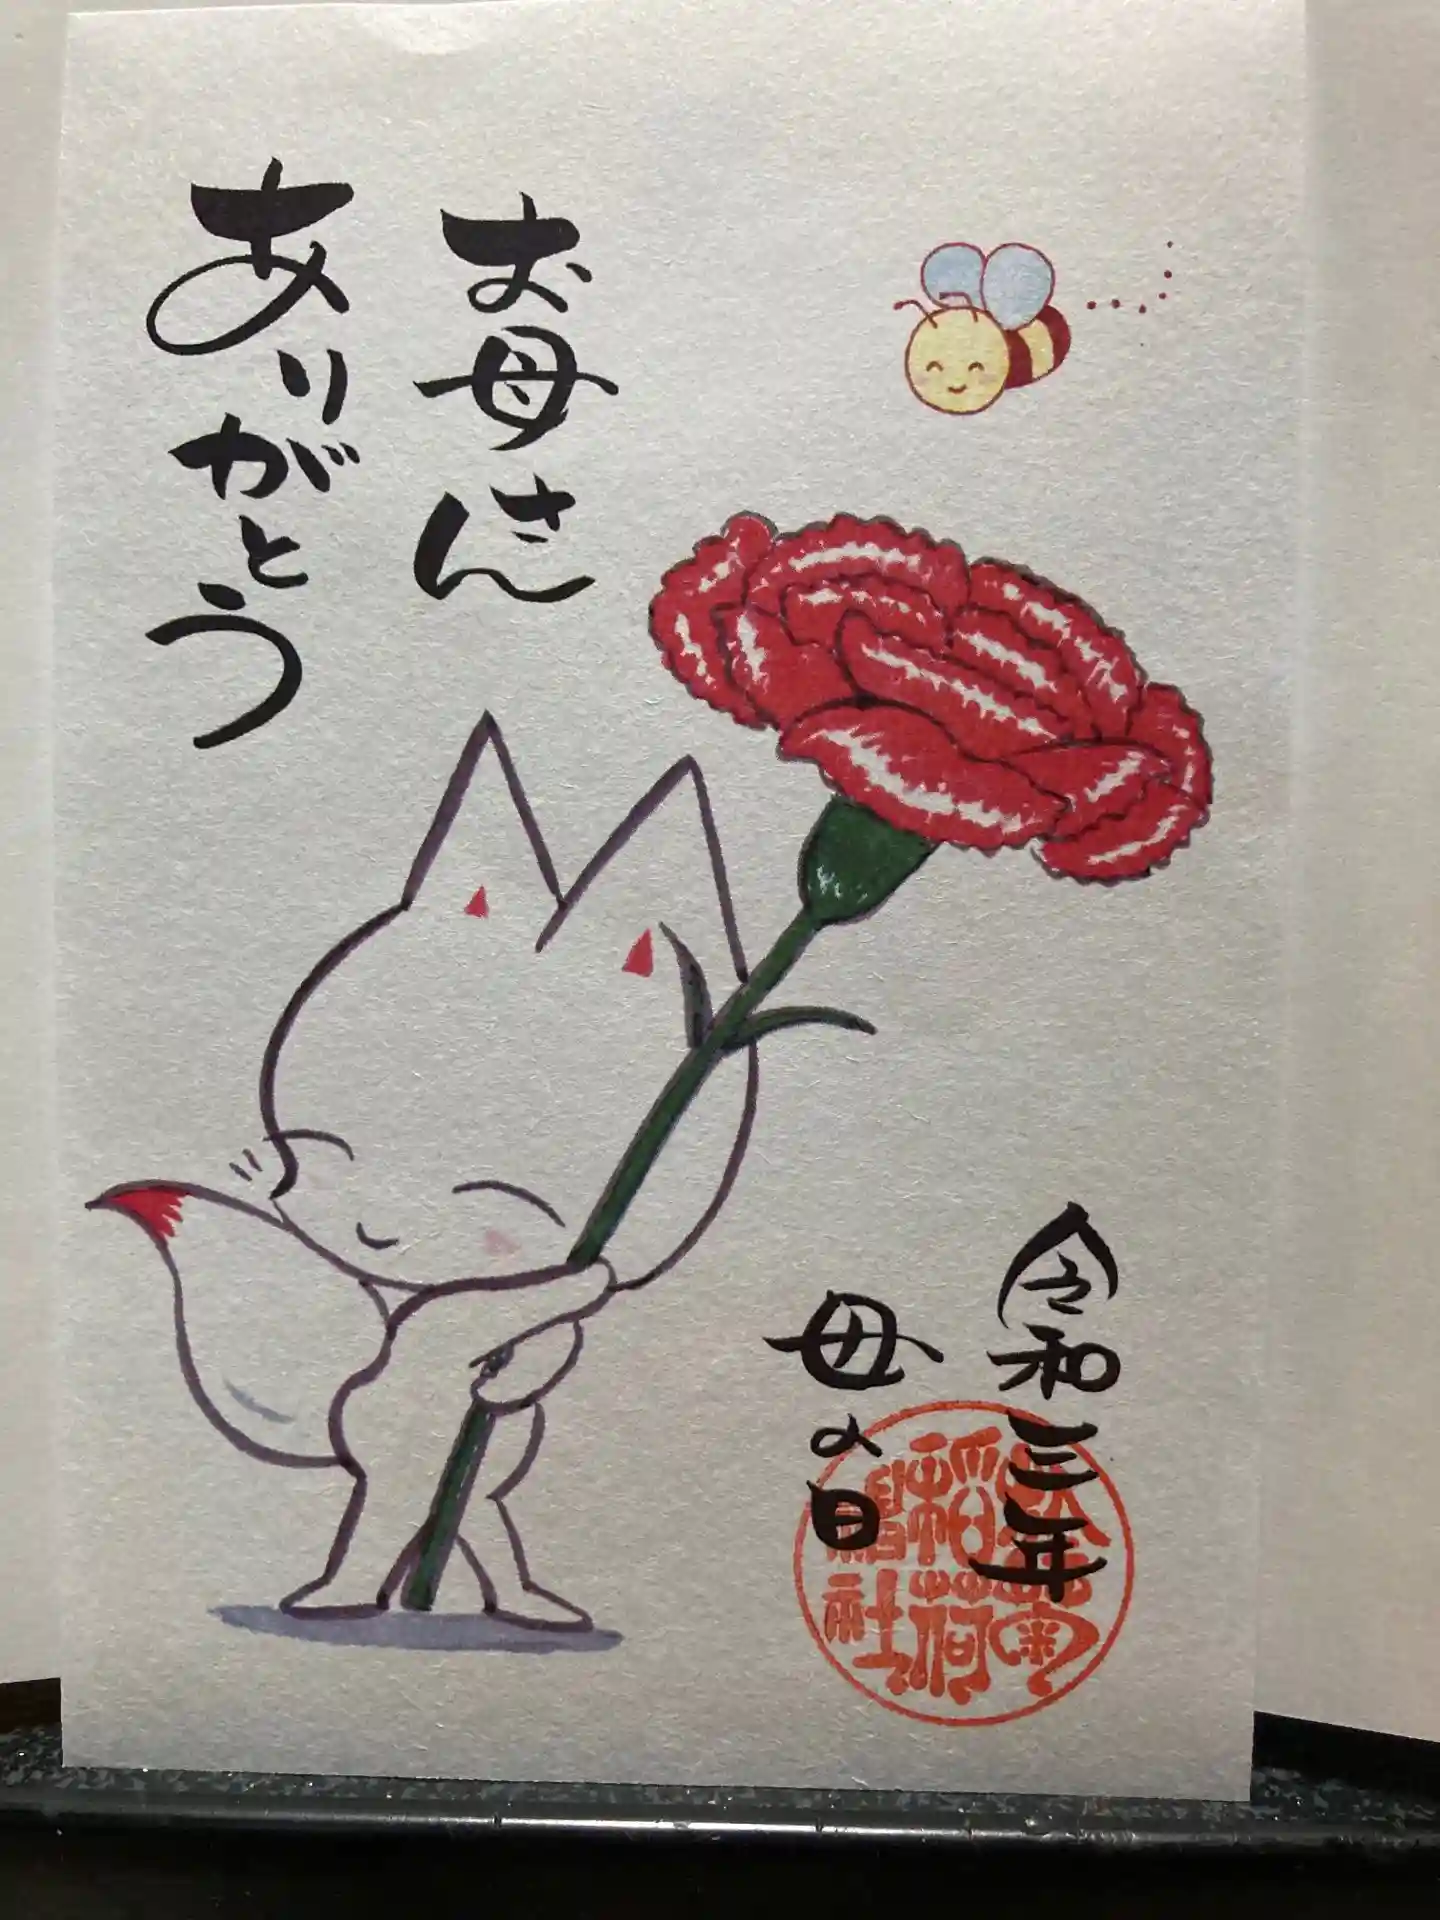 お母さん
ありがとう
令和三年
母の日
稲荷
社